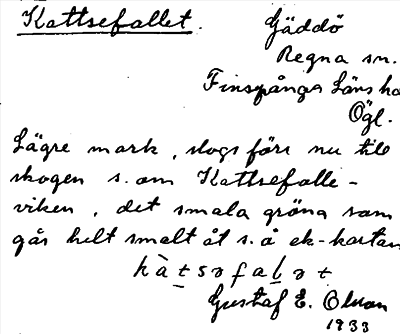 Kattsefallet.
Gäddö
Regna sn.
Finspånga Läns hd
Ögl.
Lägre mark, slogs förr nu till
skogen s. om Kattsefalle-
viken, det smala gröna som
går helt smalt åt s. å ek-kartan
Gustaf E. Olson
1933